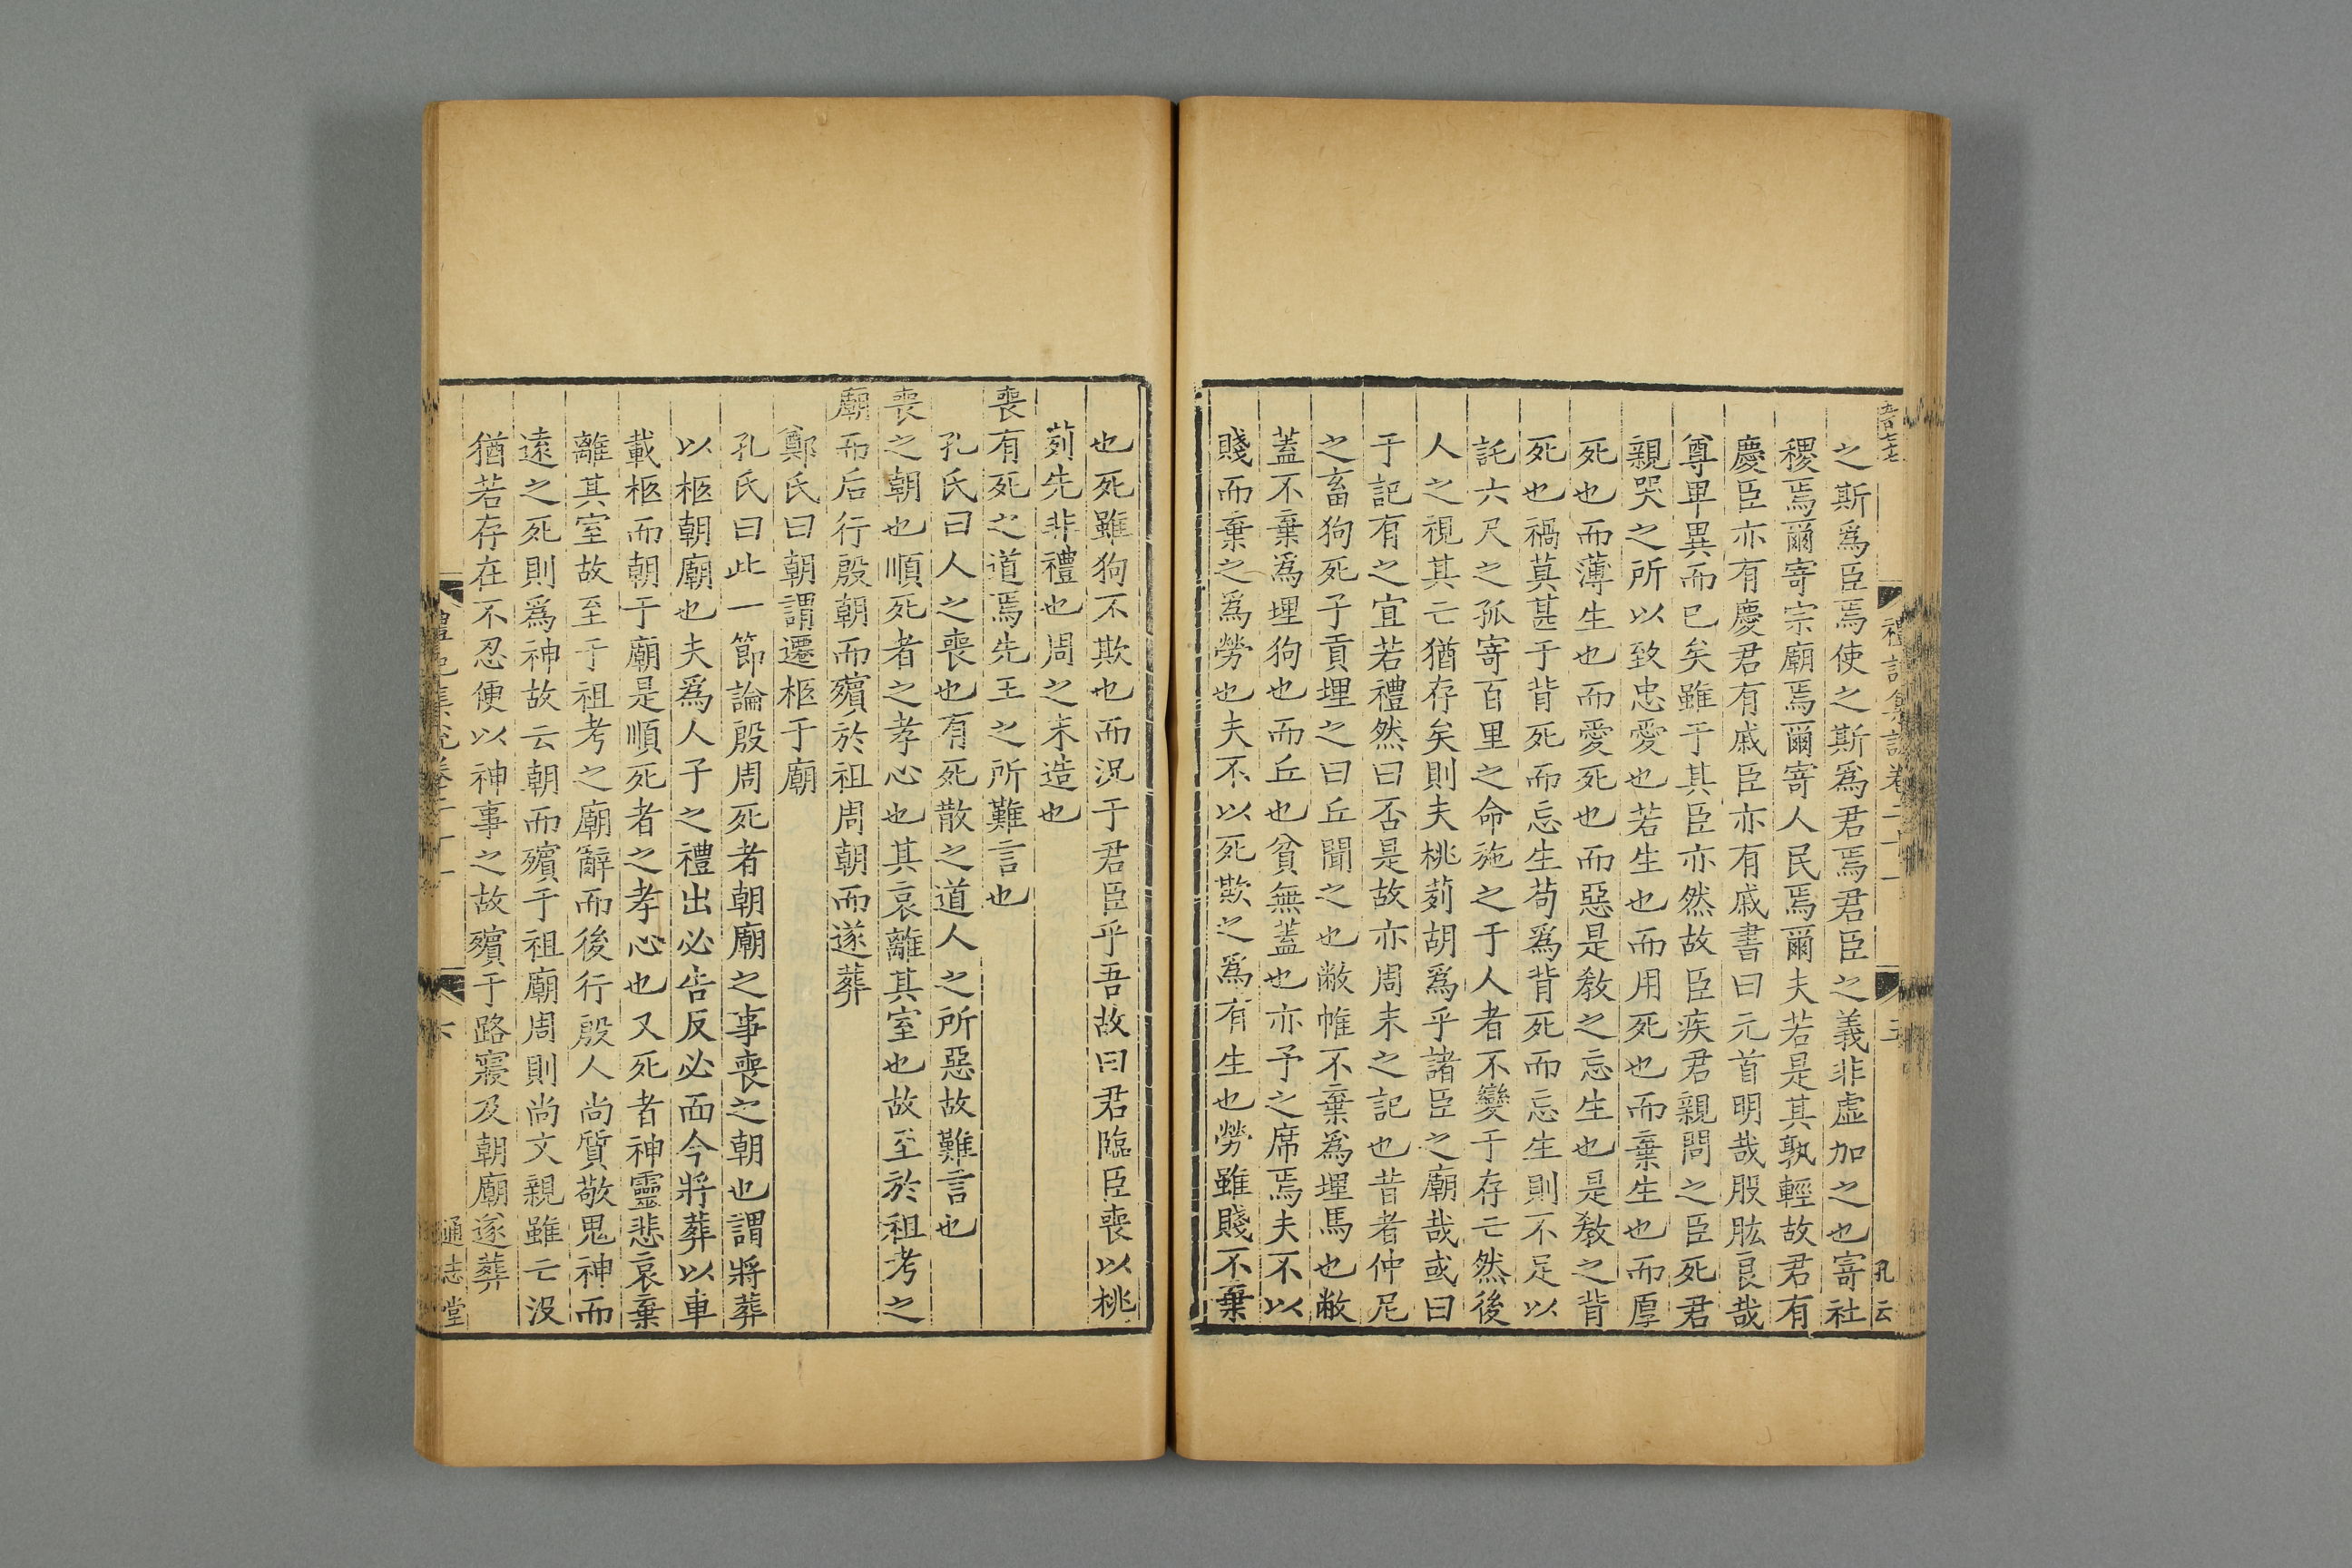 禮記集說卷二十一
五
孔云
之斯爲臣焉使之斯爲君焉君臣之義非虛加之也寄社
稷焉爾寄宗廟焉爾寄人民焉爾夫若是其孰輕故君有
慶臣亦有慶君有戚臣亦有戚書曰元首明哉股肱良哉
尊卑異而已矣雖于其臣亦然故臣疾君親問之臣死君
親哭之所以致忠愛也若生也而用死也而棄生也而厚
死也而薄生也而愛死也而惡是教之忘生也是教之背
死也禍莫甚于背死而忘生苟爲背死而忘生則不足以
託六尺之孤寄百里之命施之于人者不變于存亡然後
人之視其亡猶存矣則夫桃茢胡爲乎諸臣之廟哉或曰
于記有之宜若禮然曰否是故亦周末之記也昔者仲尼
之畜狗死子貢埋之曰丘聞之也敝帷不棄爲埋馬也敝
蓋不棄爲埋狗也而丘也貧無蓋也亦予之席焉夫不以
賤而棄之爲勞也夫不以死欺之爲有生也勞雖賤不棄
也死雖狗不欺也而況于君臣乎吾故曰君臨臣喪以桃
茢先非禮也周之末造也
喪有死之道焉先王之所難言也
孔氏曰人之喪也有死散之道人之所惡故難言也
喪之朝也順死者之孝心也其哀離其室也故至於祖考之
廟而后行殷朝而殯於祖周朝而遂葬
鄭氏曰朝謂遷柩于廟
孔氏曰此一節論殷周死者朝廟之事喪之朝也謂將葬
以柩朝廟也夫爲人子之禮出必告反必面今將葬以車
載柩而朝于廟是順死者之孝心也又死者神靈悲哀棄
離其室故至于祖考之廟辭而後行殷人尚質敬鬼神而
遠之死則爲神故云朝而殯于祖廟周則尚文親雖亡沒
猶若存在不忍便以神事之故殯于路寢及朝廟遂葬
禮記集說卷二十一
六
通志堂